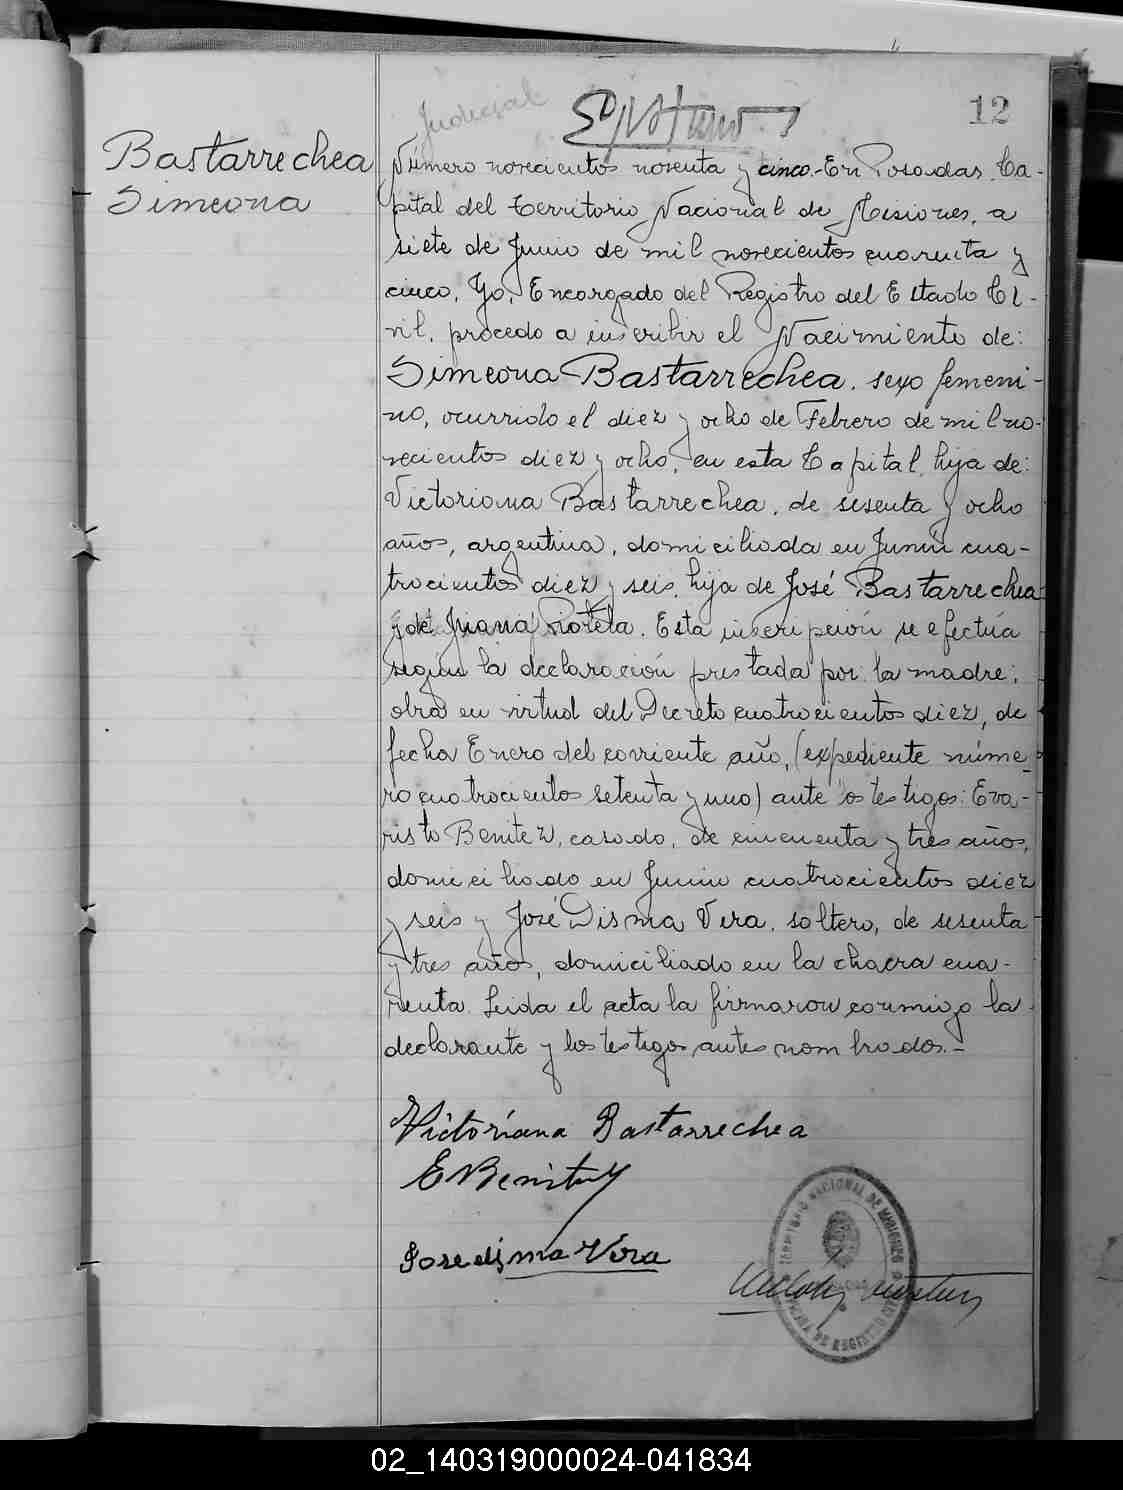 Judicial
12
Bastarrechea
Simeona
Número novecientos noventa y cinco.- En Posadas, Ca-
pital del Territorio Nacional de Misiones, a
siete de Junio de mil novecientos cuarenta y
cinco, Yo, Encargado del Registro del Estado Ci-
vil, procedo a inscribir el Nacimiento de:
Simeona Bastarrechea, sexo femeni-
no, ocurrido el diez y ocho de Febrero de mil no-
vecientos diez y ocho, en esta Capital, hija de:
Victoriana Bastarrechea, de sesenta y ocho
años, argentina, domiciliada en Junín cua-
trocientos diez y seis, hija de José Bastarrechea
y de Juana Rotela. Esta inscripción se efectúa
según la declaración prestada por: la madre;
obra en virtud del Decreto cuatrocientos diez, de
fecha Enero del corriente año, (expediente núme-
ro cuatrocientos setenta y uno) ante los testigos: Eva-
risto Benitez, casado, de cincuenta y tres años,
domiciliado en Junin cuatrocientos diez
y seis y José Disma Vera, soltero, de sesenta
y tres años, domiciliado en la chacra cua-
renta. Leida el acta la firmaron conmigo la
declarante y los testigos antes nombrados.-
Victoriana Bastarrechea
E Benitez
Jose disma Vera
TERRITORIO NACIONAL DE MISIONES
REGISTRO
02_140319000024-041834